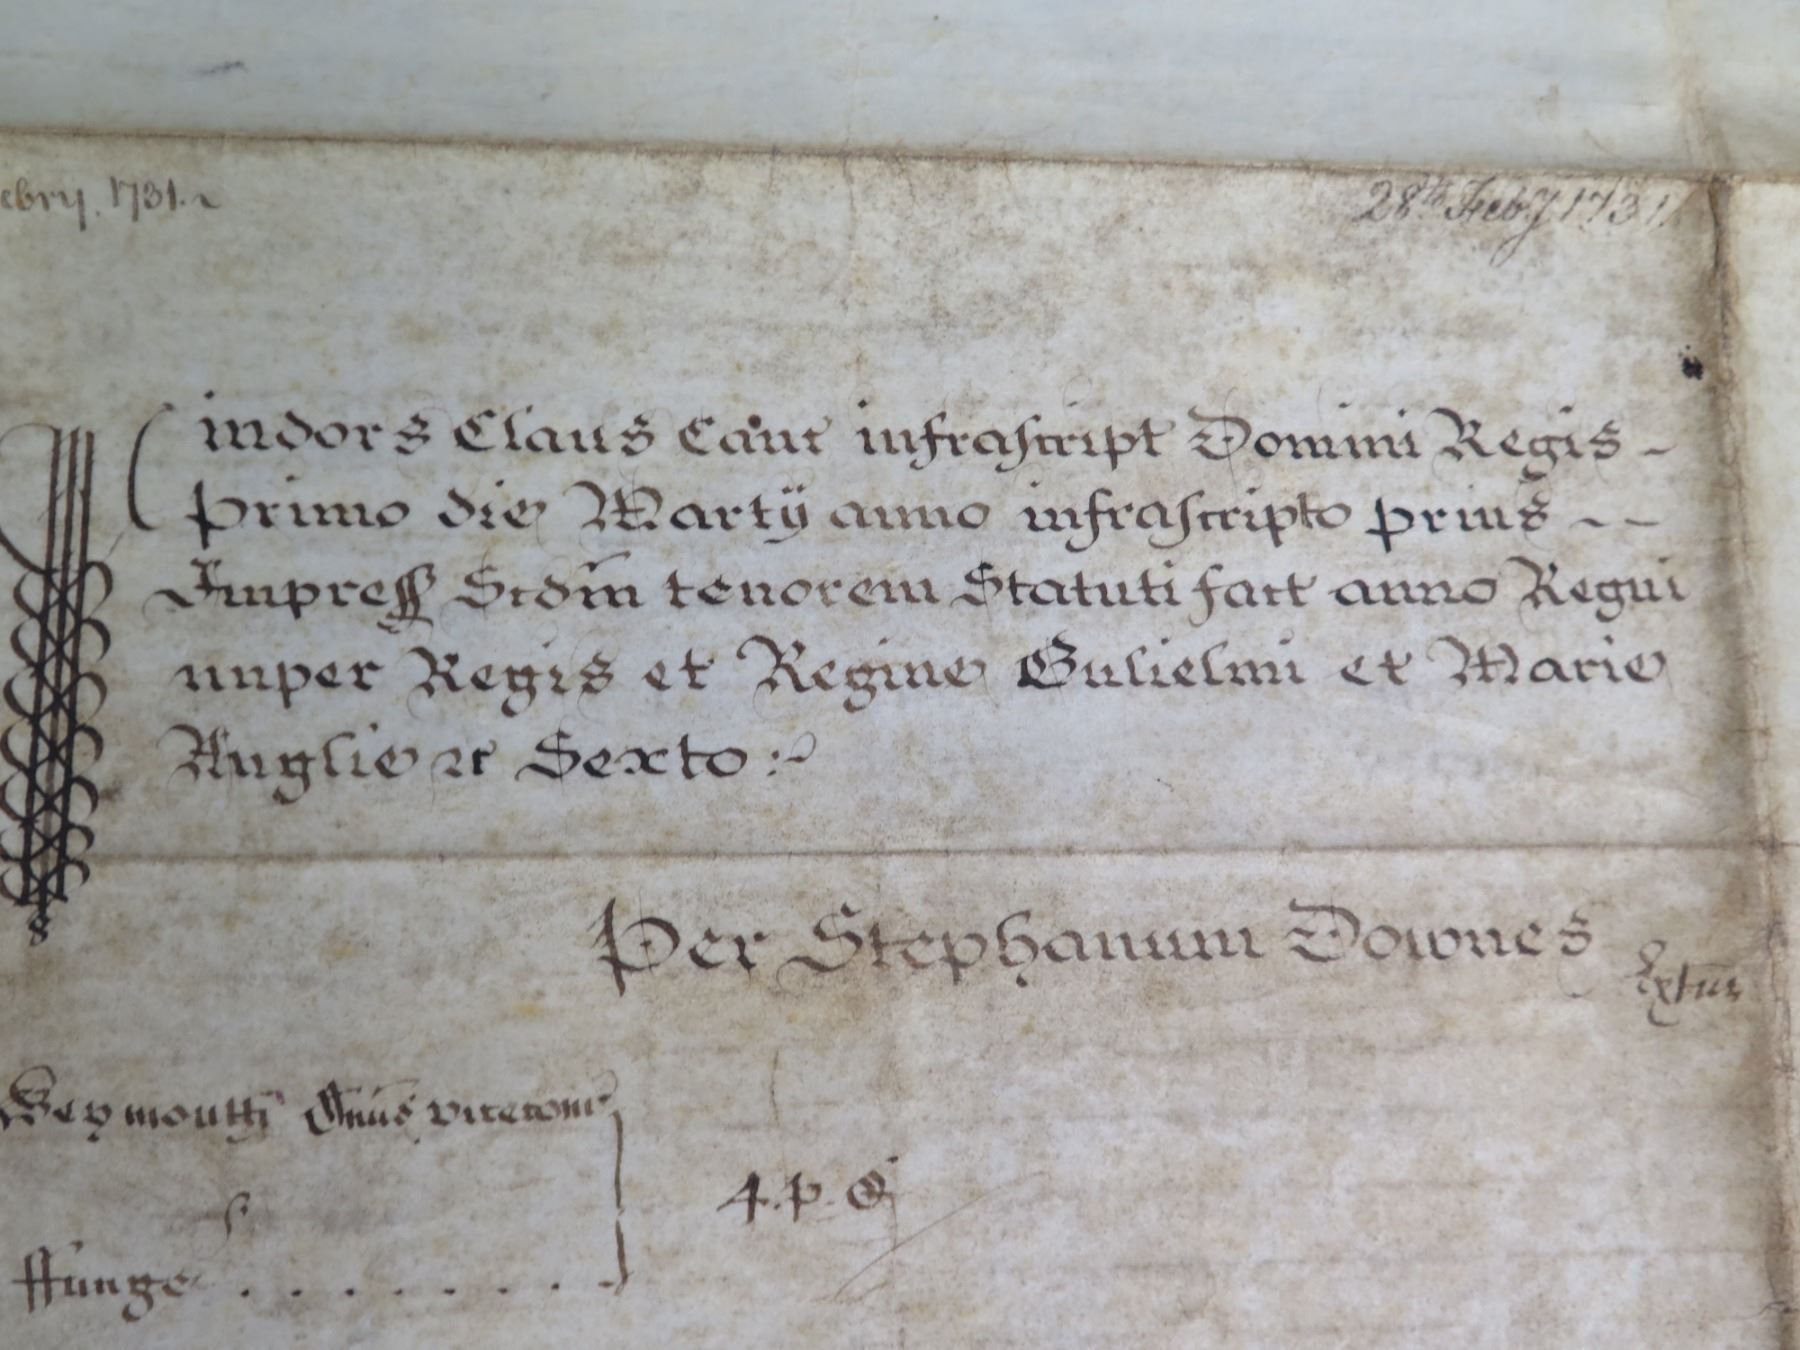 ebry. 1731.
28th Feby 1731
indors Claus Canc infrascript Domini Regis -
primo die Martij anno infrascripto prius - -
Impress Scdm tenorem Statuti fact anno Regni
nuper Regis et Regine Gulielmi et Marie
Anglie &c Sexto :
Per Stephanum Downes
Weymouth vicecom
4. p. G
ffunge . . . . . . . .